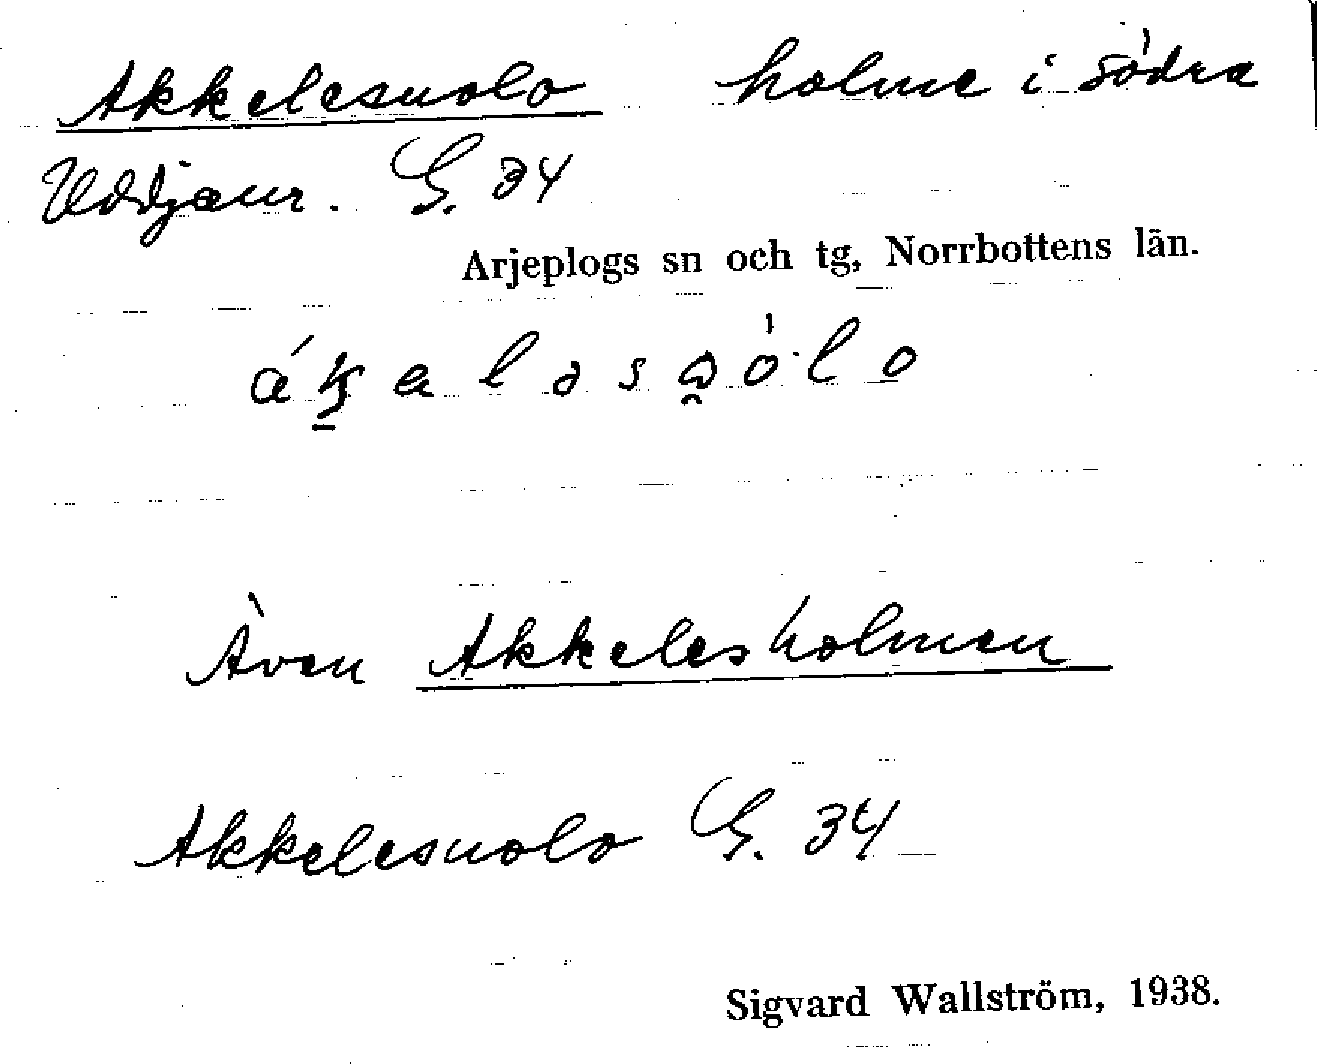 Akkelesuolo holme i södra
Uddjaur. G. 34
Arjeplogs sn och tg, Norrbottens län.
Även Akkelesholmen
Akkelesuolo G. 34
Sigvard Wallström, 1938.